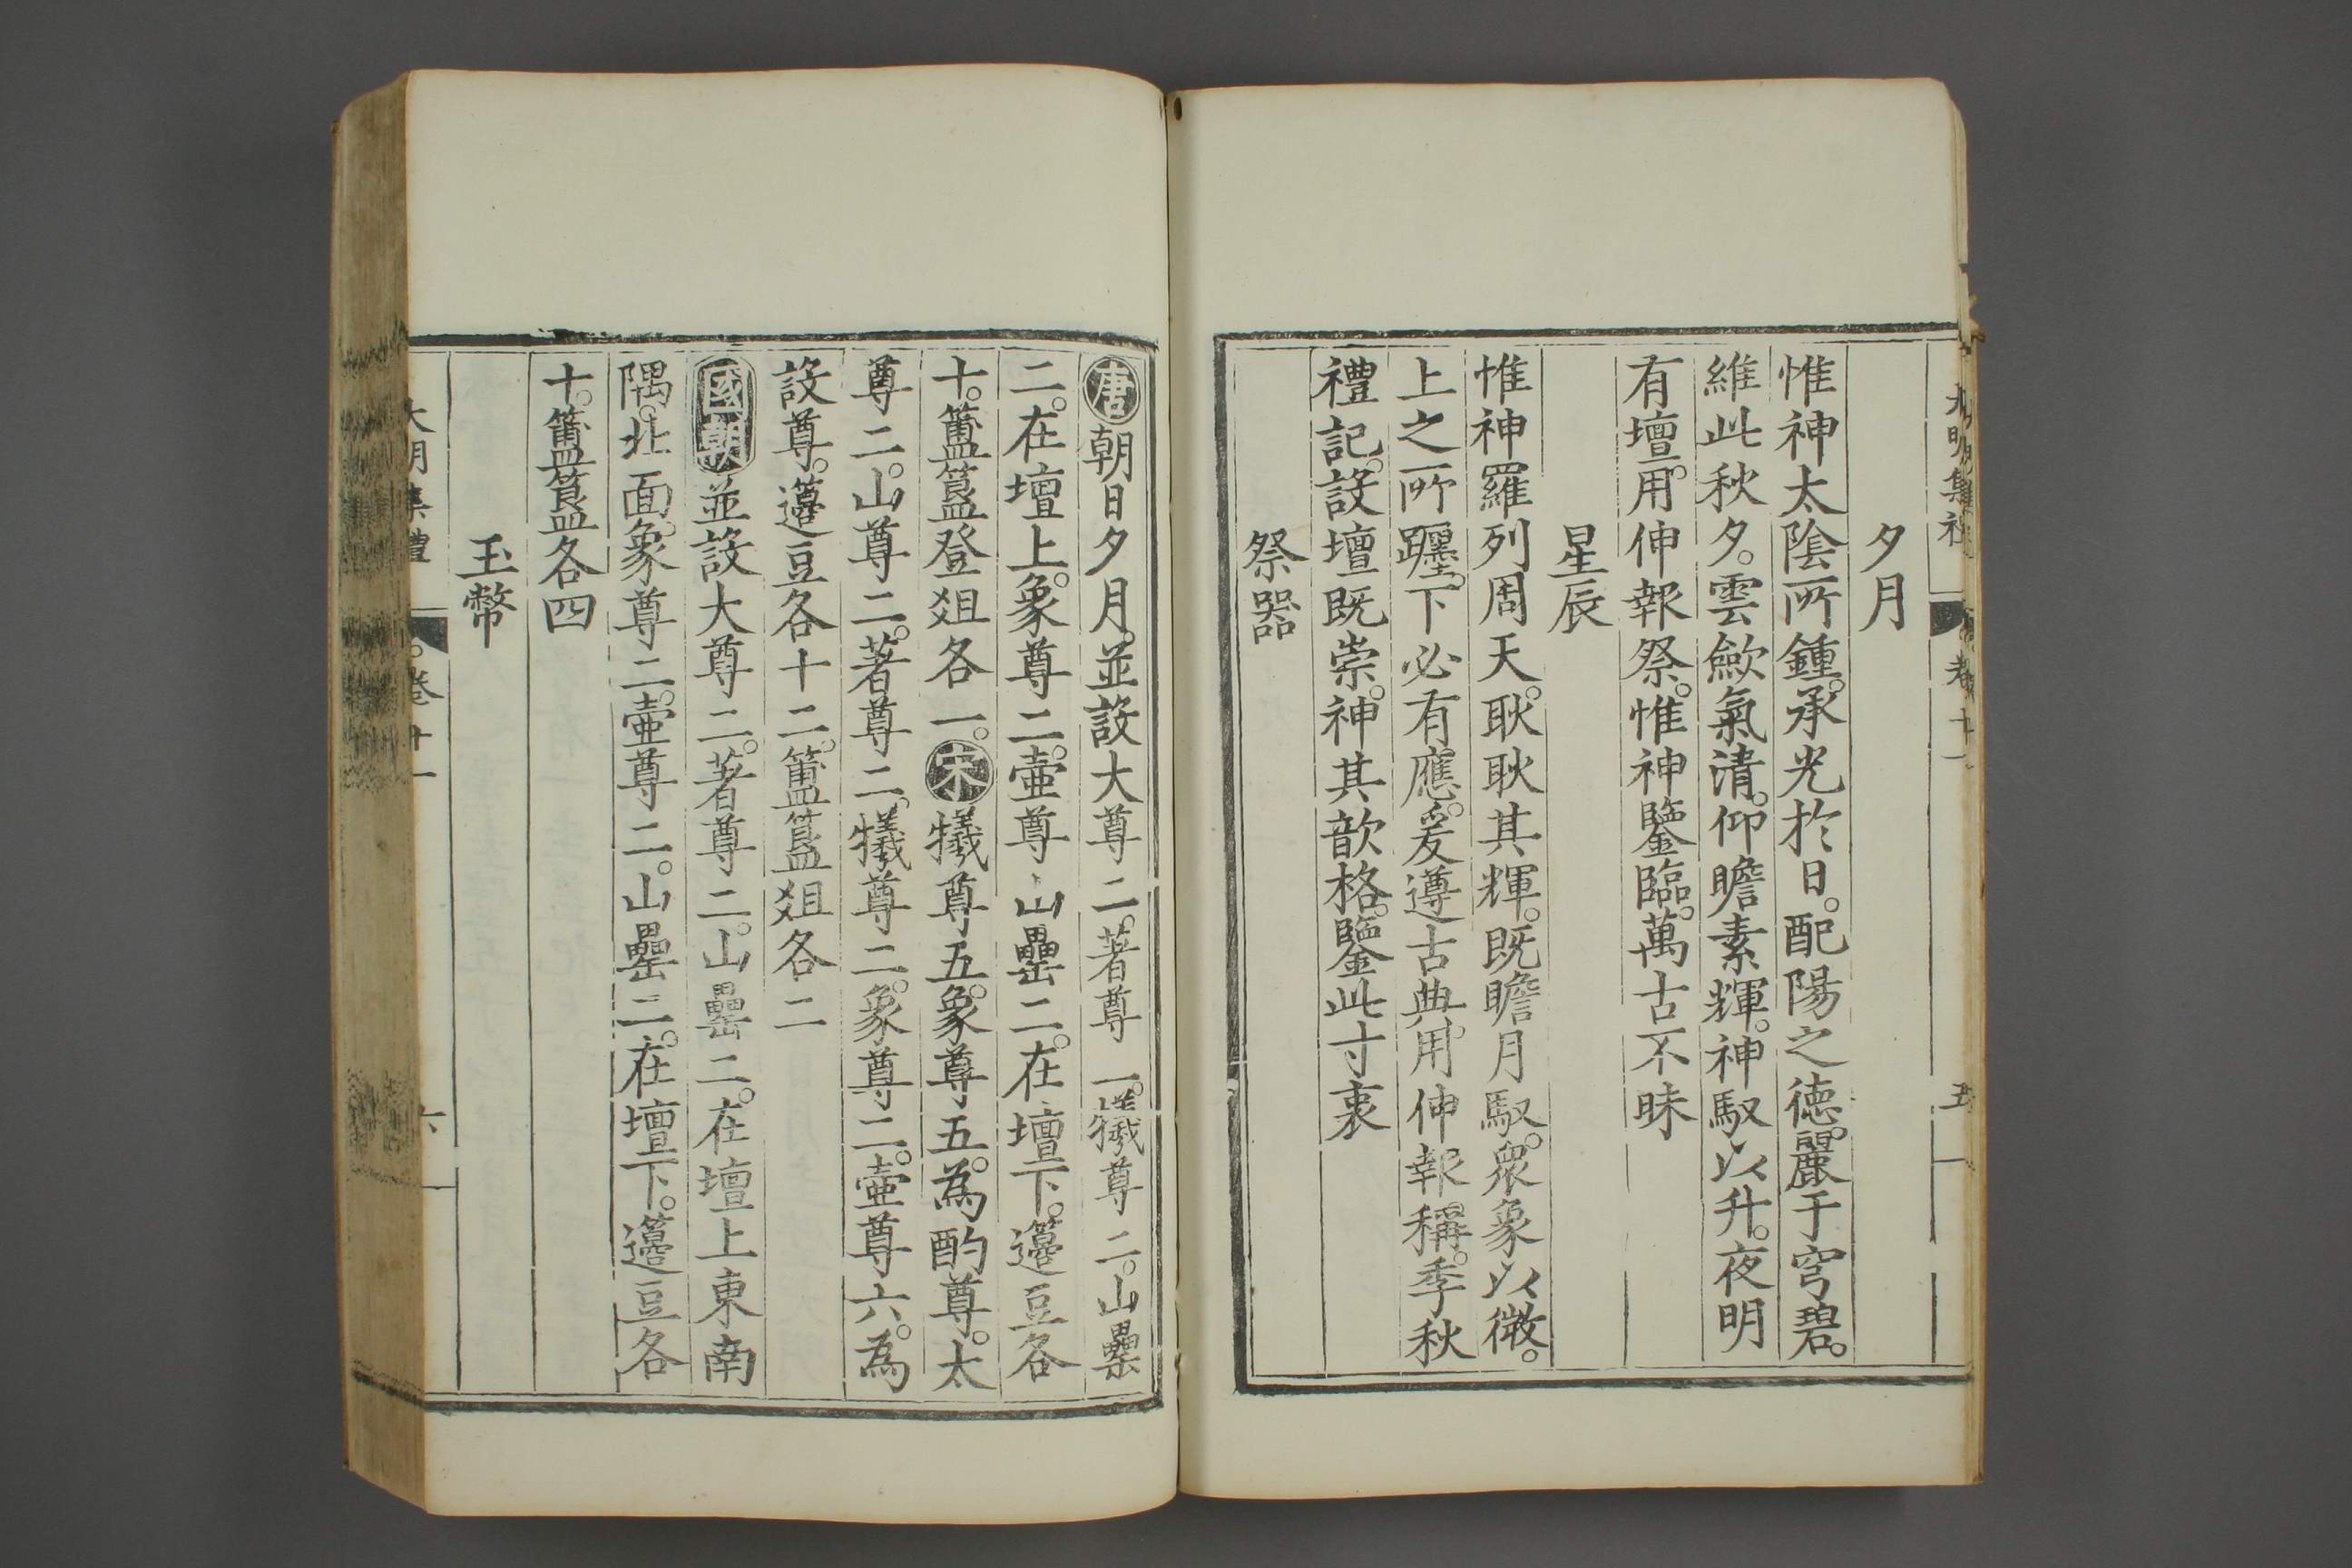 大明集禮 卷十一 五
夕月
惟神太陰所鍾。承光於日。配陽之德。麗于穹碧。
維此秋夕。雲斂氣清。仰瞻素輝。神馭以升。夜明
有壇。用伸報祭。惟神鑒臨。萬古不昧
星辰
惟神羅列周天。耿耿其輝。既瞻月馭。眾象以微。
上之所躔。下必有應。爰遵古典。用伸報稱。季秋
禮記。設壇既崇。神其歆格。鑒此寸衷
祭器
唐朝日夕月。並設大尊二。著尊一。犧尊二。山罍
二。在壇上。象尊二。壺尊山罍二。在壇下。籩豆各
十。簠簋登俎各一。宋犧尊五。象尊五。為酌尊。太
尊二。山尊二。著尊二。犧尊二。象尊二。壺尊六。為
設尊。籩豆各十二。簠簋俎各二
國朝並設大尊二。著尊二。山罍二。在壇上東南
隅。北面。象尊二。壺尊二。山罍二。在壇下。籩豆各
十。簠簋各四
玉幣
大明集禮 卷十一 六